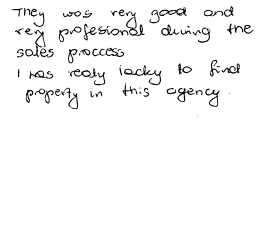 They was very good and
very profesional during the
sales proccess
I was realy lacky to find
property in this agency.